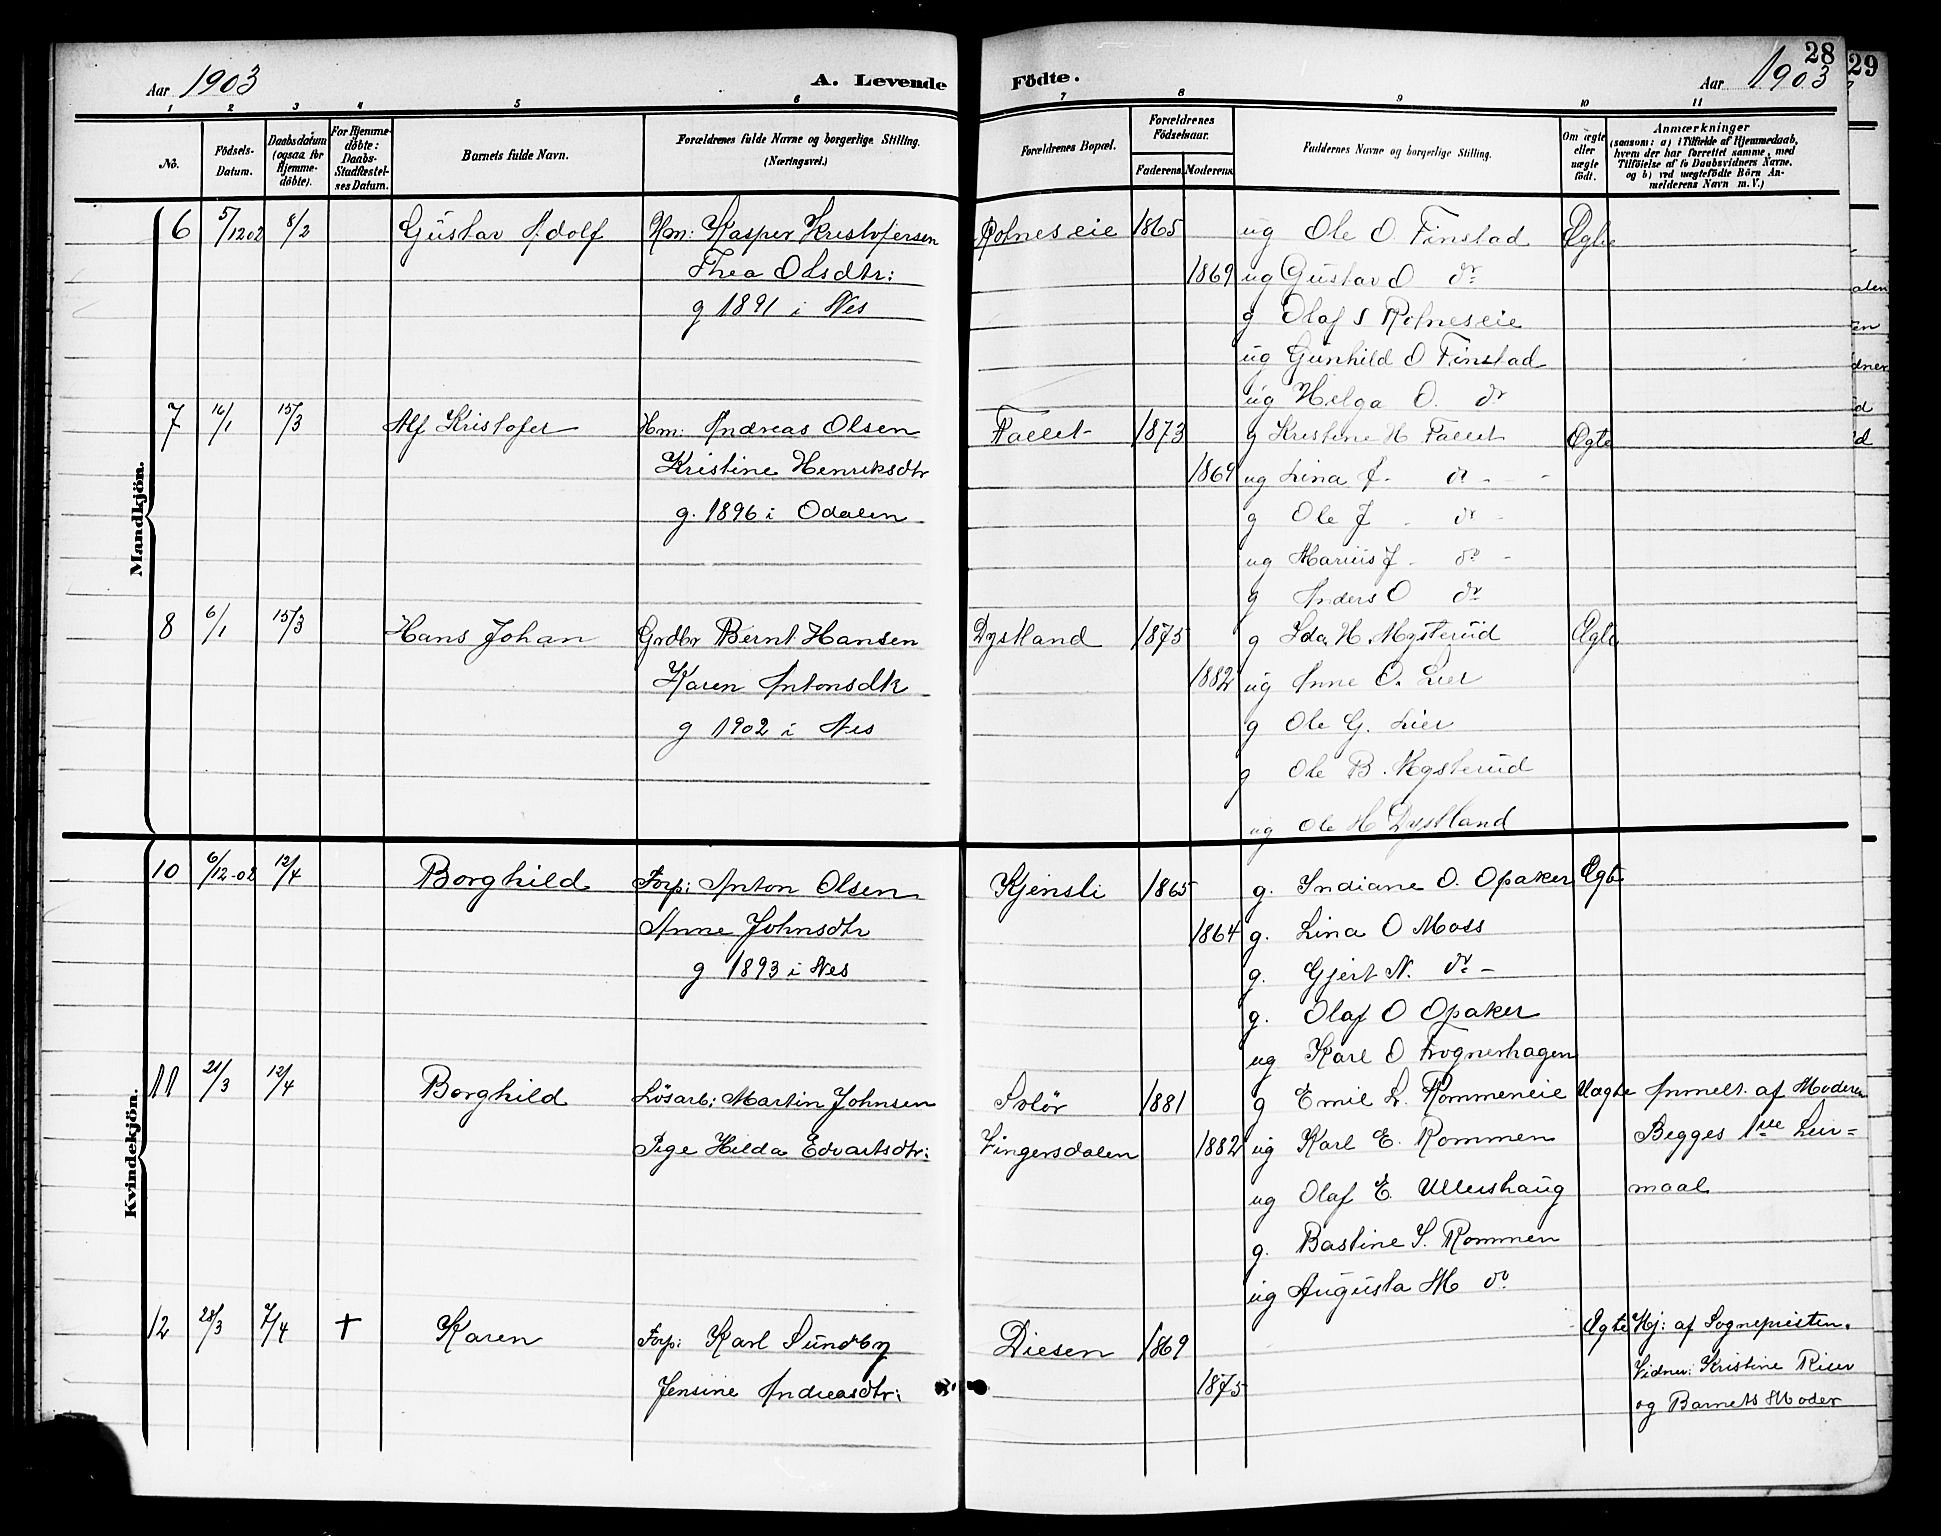 28
29
Aar 1903
A. Levende Födte.
Aar 1903
1 2 3 4 5 6 7 8 9 10 11
Nô.
Födsels-Datum.
Daabsdatum (ogsaa for Hjemme-döbte).
For Hjemme-döbte: Daabs-Stadfæstel-ses Datum.
Barnets fulde Navn.
Forældrenes fulde Navne og borgerlige Stilling.
(Næringsvei.)
Forældrenes Bopæl.
Forældrenes Födselsaar.
Faderens. Moderens.
Faddernes Navne og borgerlige Stilling.
Om ægte eller uægte födt.
Anmærkninger
(saasom: a) i Tilfælde af Hjemmedaab,
hvem der har forrettet samme, med
Tilföielse af to Daabsvidners Navne.
og b) ved uægtefödte Börn An-
melderens Navn m. V.)
Mandkjön.
6 5/12 02 8/2 Gustav Adolf Hm: Kasper Kristofersen Rofneseie 1865 ug Ole O. Finstad Ægte
Thea Olsdtr: 1869 ug Gustav O do
g 1891 i Nes g Olaf S Rofneseie
ug Gunhild O Finstad
ug Helga O. do
7 16/1 15/3 Alf Kristofer Hm: Andreas Olsen Fallet 1873 g Kristine H Fallet Ægte
Kristine Henriksdtr 1869 ug Lina J. do - -
g. 1896 i Odalen g Ole J. do -
ug Marius J. do -
g Anders O do
8 6/1 15/3 Hans Johan Grdbr Bernt Hansen Dystland 1875 g Ida H. Mysterud Ægte
Karen Antonsdtr 1882 ug Anne O. Lier
g 1902 i Nes g Ole G. Lier
g Ole B. Mysterud
ug Ole H Dystland
Kvindekjön.
10 6/12-02 12/4 Borghild Forp: Anton Olsen Kjensli 1865 g. Indiane O. Opaker Ægte
Anne Johnsdtr 1864 g. Lina O Moss
g 1893 i Nes g. Gjert N. do -
g. Olaf O Opaker
ug Karl O Frognerhagen
11 21/3 12/4 Borghild Lösarb: Martin Johnsen Solör 1881 g Emil L. Rommeneie Uægte Anmelt. af Moderen
Pige Hilda Edvartsdtr: Vingersdalen 1882 ug Karl E. Rommen Begges 1ste Leir=
ug Olaf E. Ullershaug maal
g. Bastine S. Rommen
ug Augusta M do
12 28/3 7/4 + Karen Forp: Karl Sundby Diesen 1869 Ægte Hj: af Sognepresten.
Jensine Andreasdtr: 1875 Vidner: Kristine Riser
og Barnets Moder